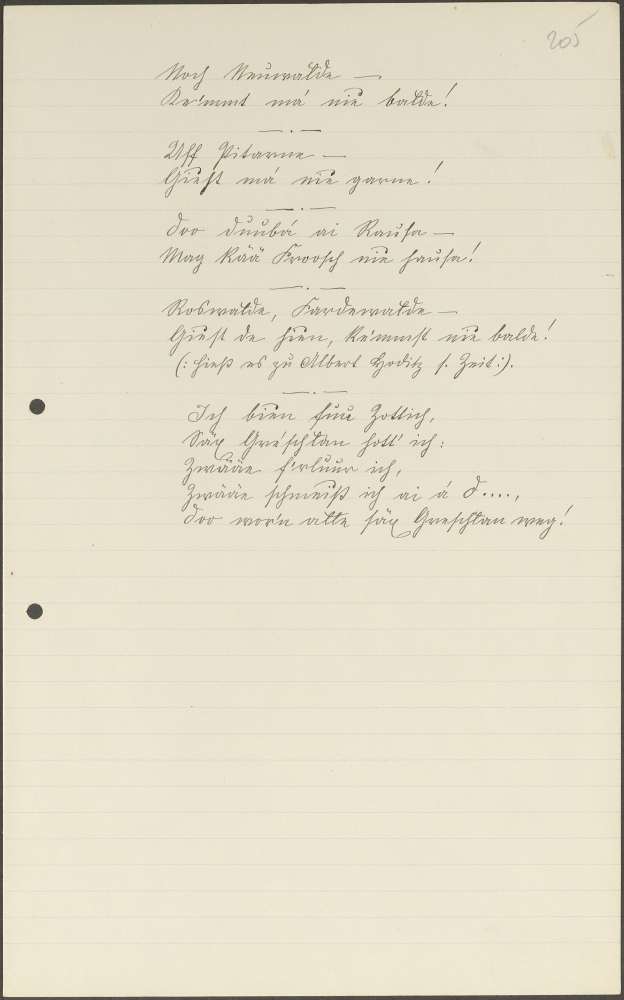 205
Noch Neuwalde —
Ke'mmt má nie balde!
Uff Pitarne —
Gieht má nie garne!
Doo Duubá ai Rausa —
Mag kää Froosch nie hausa!
Roswalde, Fardewalde —
Giest de hien, ke'mmst nie balde!
(: hieß es zu Albert Hoditz s. Zeit :).
Ich bien fuu Zottich,
Säx Gre'schlan hott' ich:
Zwääe f'rluur ich,
Zwääe schmeiß ich ai á D....,
Doo wor'n alle säx Greschlan weg!